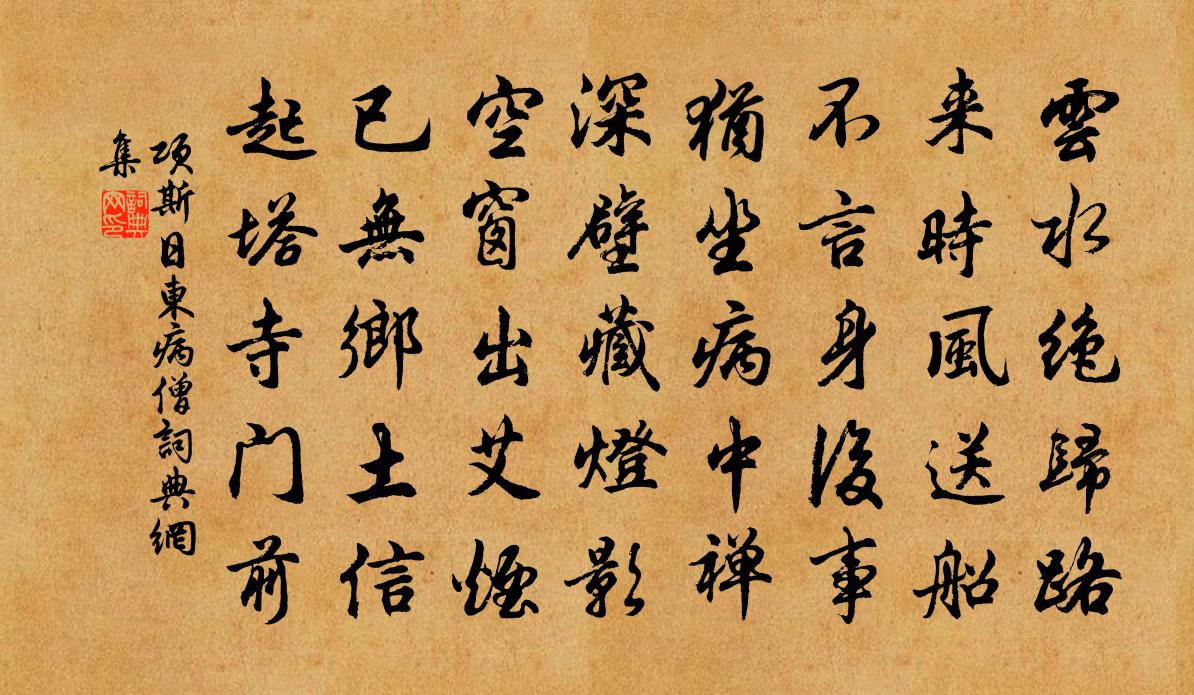 雲水絶歸路
来時風送船
不言身後事
猶坐病中禅
深壁藏燈影
空窗出艾煙
已無鄉土信
起塔寺门前
项斯日東病僧詞典網
集
詞典網印